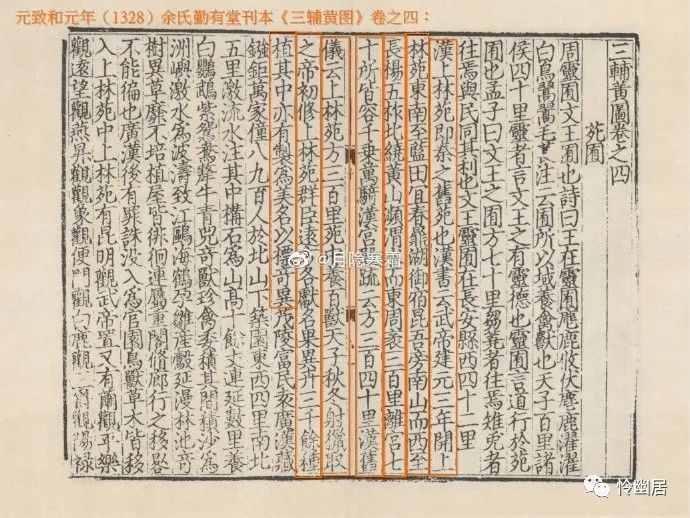 元致和元年（1328）余氏勤有堂刊本《三辅黄图》卷之四：
三輔黃圖卷之四
苑囿
周靈囿文王囿也詩曰王在靈囿麀鹿攸伏麀鹿濯濯
白鳥翯翯毛注云囿所以域養禽獸也天子百里諸
侯四十里靈者言文王之有靈德也靈囿言道行於苑
囿也孟子曰文王之囿方七十里芻蕘者往焉雉兔者
往焉與民同其利也文王靈囿在長安縣西四十二里
漢上林苑即秦之舊苑也漢書云武帝建元三年開上
林苑東南至藍田宜春鼎湖御宿昆吾旁南山而西至
長楊五柞北繞黃山瀕渭而東周袤三百里離宮七
十所皆容千乘萬騎漢宮殿疏云方三百四十里漢舊
儀云上林苑方三百里苑養百獸天子秋冬射獵取
之帝初修上林苑群臣遠各獻名果異卉三千餘種
植其中亦有製為美名以標奇異茂陵富民袁廣漢藏
鏹鉅萬家僮八九百人於北山下築園東西四里南北
五里激流水注其中搆石為山高十餘丈連延數里養
白鸚鵡紫鴛鴦犛牛青兕奇獸珍禽委積其間積沙為
洲嶼激水為波濤致江鷗海鶴孕雛產鷇延漫林池奇
樹異草靡不培植屋皆徘徊連屬重閣脩廊行之移晷
不能徧也廣漢後有罪誅沒入為官園鳥獸草木皆移
入上林苑中上林苑有昆明觀武帝置又有蘭觀平樂
觀遠望觀燕昇觀觀象觀便門觀白鹿觀三爵觀陽祿
@月隐寒霜
怜幽居